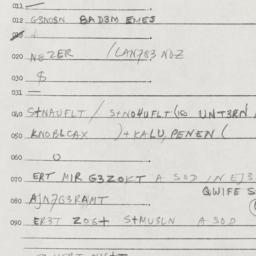 011
012 G3NOSN BAD3M EMES
020 NEZER /LAN783 NDZ
030 $
031 —
040 S+NAUFLT / S+NO4UFLT(10 UNT3RN
050 KNOBLCAX )+KALU, PENEN (
060 O
070 ERT MIR G3ZOKT A SOD IN EJ3
QWIFE S
080 AJN7G3RAMT
090 ER3T ZOG+ S+MU3LN A SOD